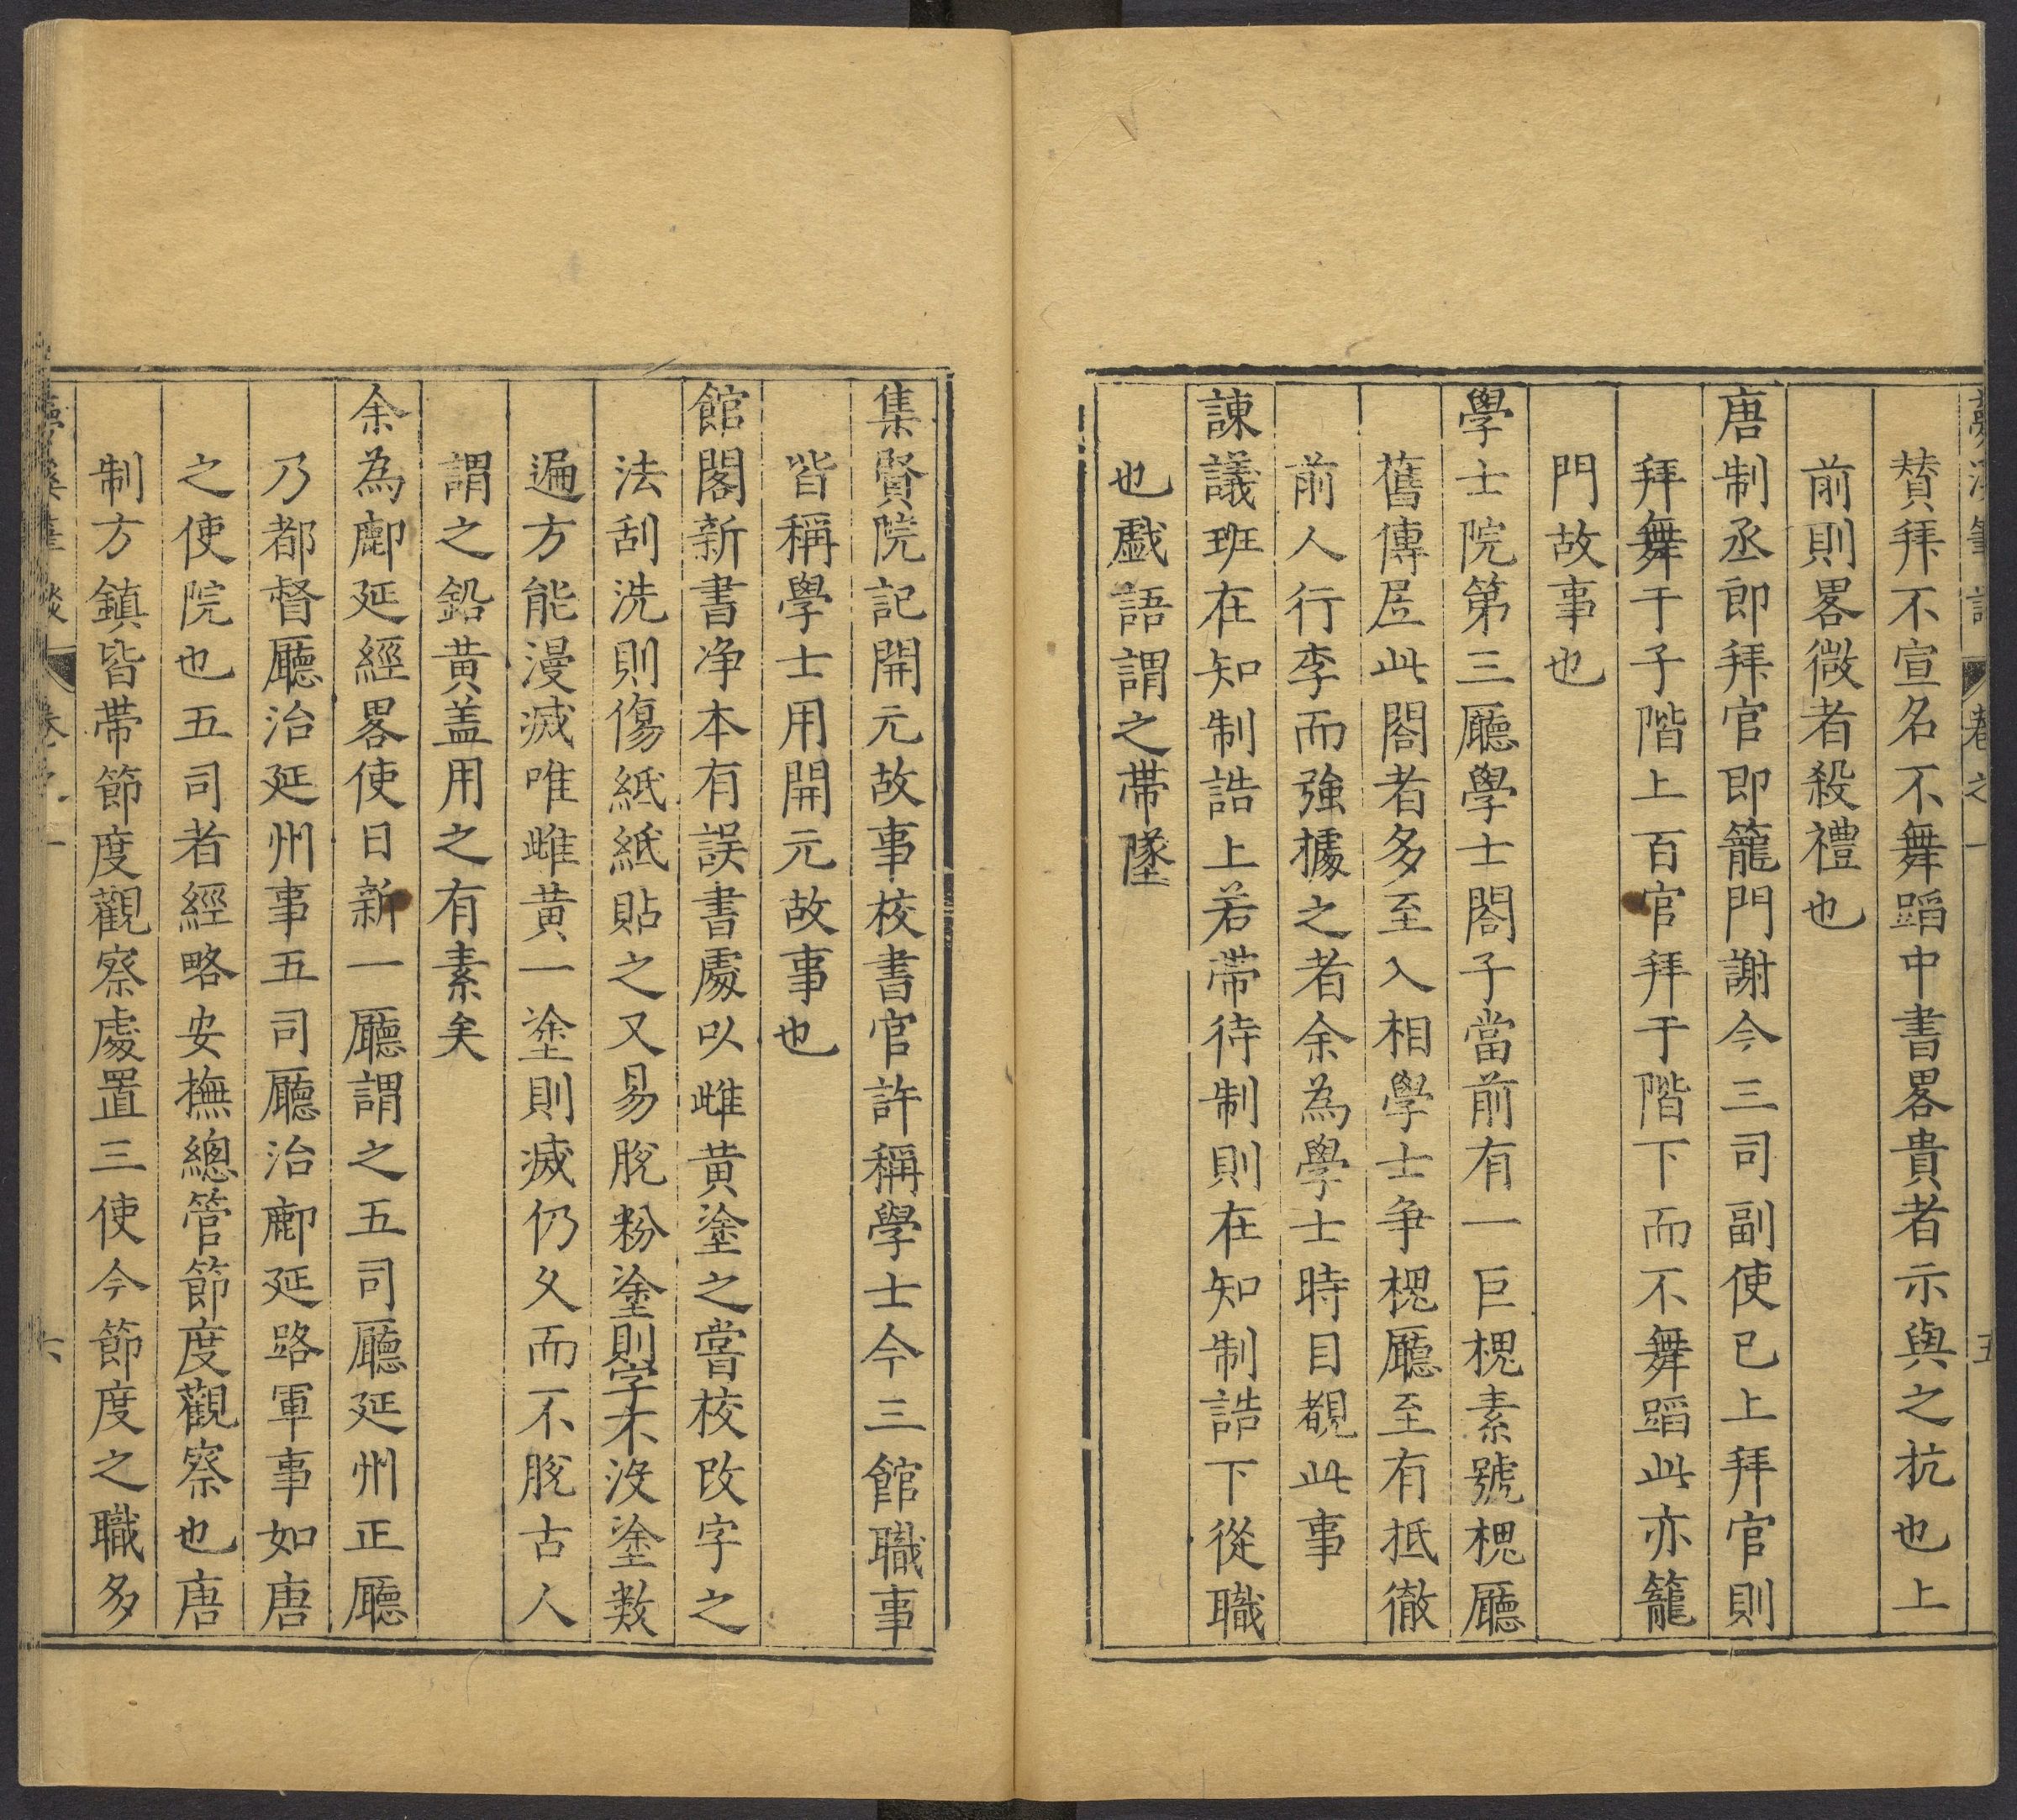 夢溪筆談 卷之一 五
賛拜不宣名不舞蹈中書畧貴者示與之抗也上
前則畧微者殺禮也
唐制丞郎拜官即籠門謝今三司副使已上拜官則
拜舞于子階上百官拜于階下而不舞蹈此亦籠
門故事也
學士院第三廳學士閤子當前有一巨槐素號槐廳
舊傳居此閤者多至入相學士争槐廳至有抵徹
前人行李而強據之者余為學士時目覩此事
諫議班在知制誥上若帶待制則在知制誥下從職
也戯語謂之帶墜
集賢院記開元故事校書官許稱學士今三館職事
皆稱學士用開元故事也
館閣新書净本有誤書處以雌黄塗之嘗校改字之
法刮洗則傷紙紙貼之又易脫粉塗則字不没塗數
遍方能漫滅唯雌黄一塗則滅仍久而不脫古人
謂之鉛黄盖用之有素矣
余為鄜延經畧使日新一廳謂之五司廳延州正廳
乃都督廳治延州事五司廳治鄜延路軍事如唐
之使院也五司者經略安撫總管節度觀察也唐
制方鎮皆帶節度觀察處置三使今節度之職多
夢溪筆談 卷之一 六